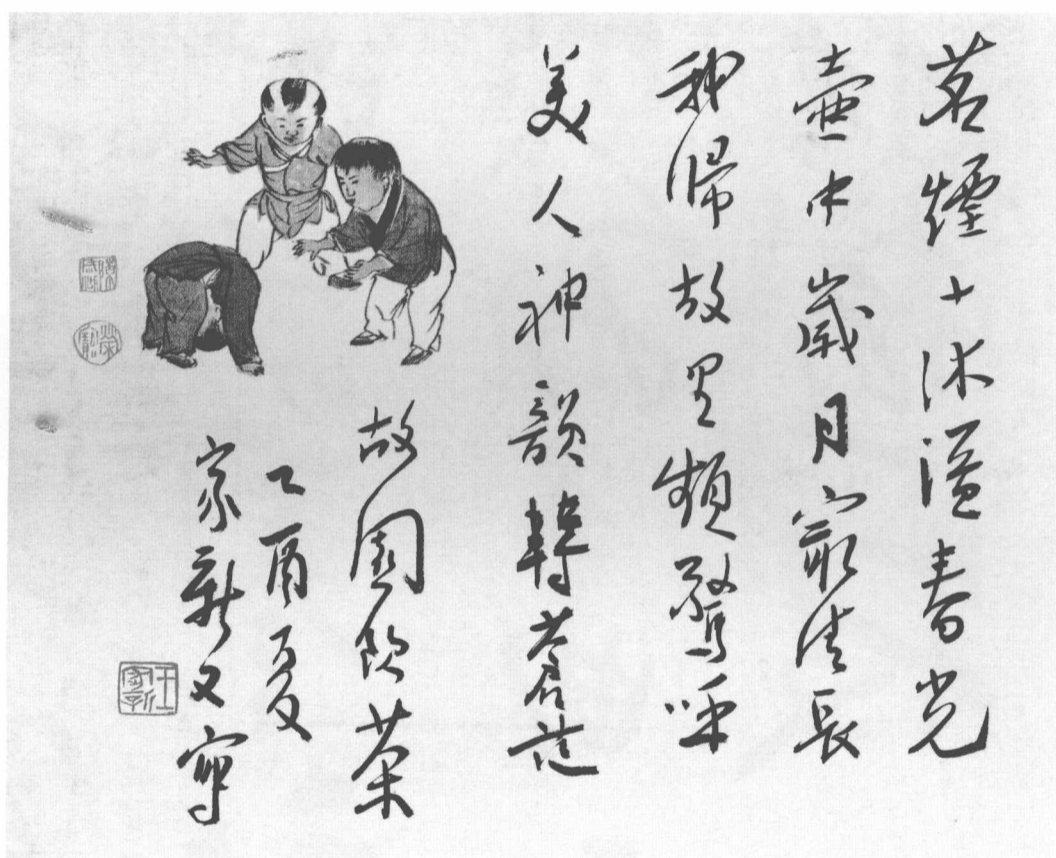 茗煙沐溢春光
壺中歲月最長
我歸故里頻驚呼
美人神韻轉蒼茫
故園飲茶
乙酉夏
家新又寫
王家新